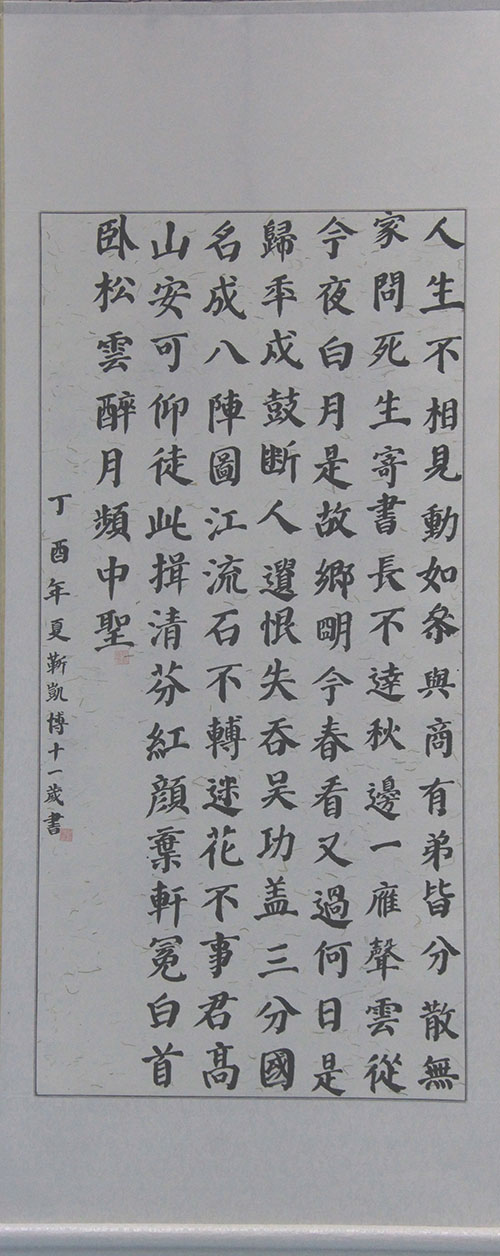 人生不相見動如叅與商有弟皆分散無
家問死生寄書長不達秋邊一雁聲雲從
今夜白月是故鄉眀今春看又過何日是
歸年戍鼓斷人遺恨失吞吴功盖三分國
名成八陣圖江流石不轉迷花不事君髙
山安可仰徒此揖清芬紅顔棄軒冕白首
卧松雲醉月頻中聖
丁酉年夏靳凱博十一歲書